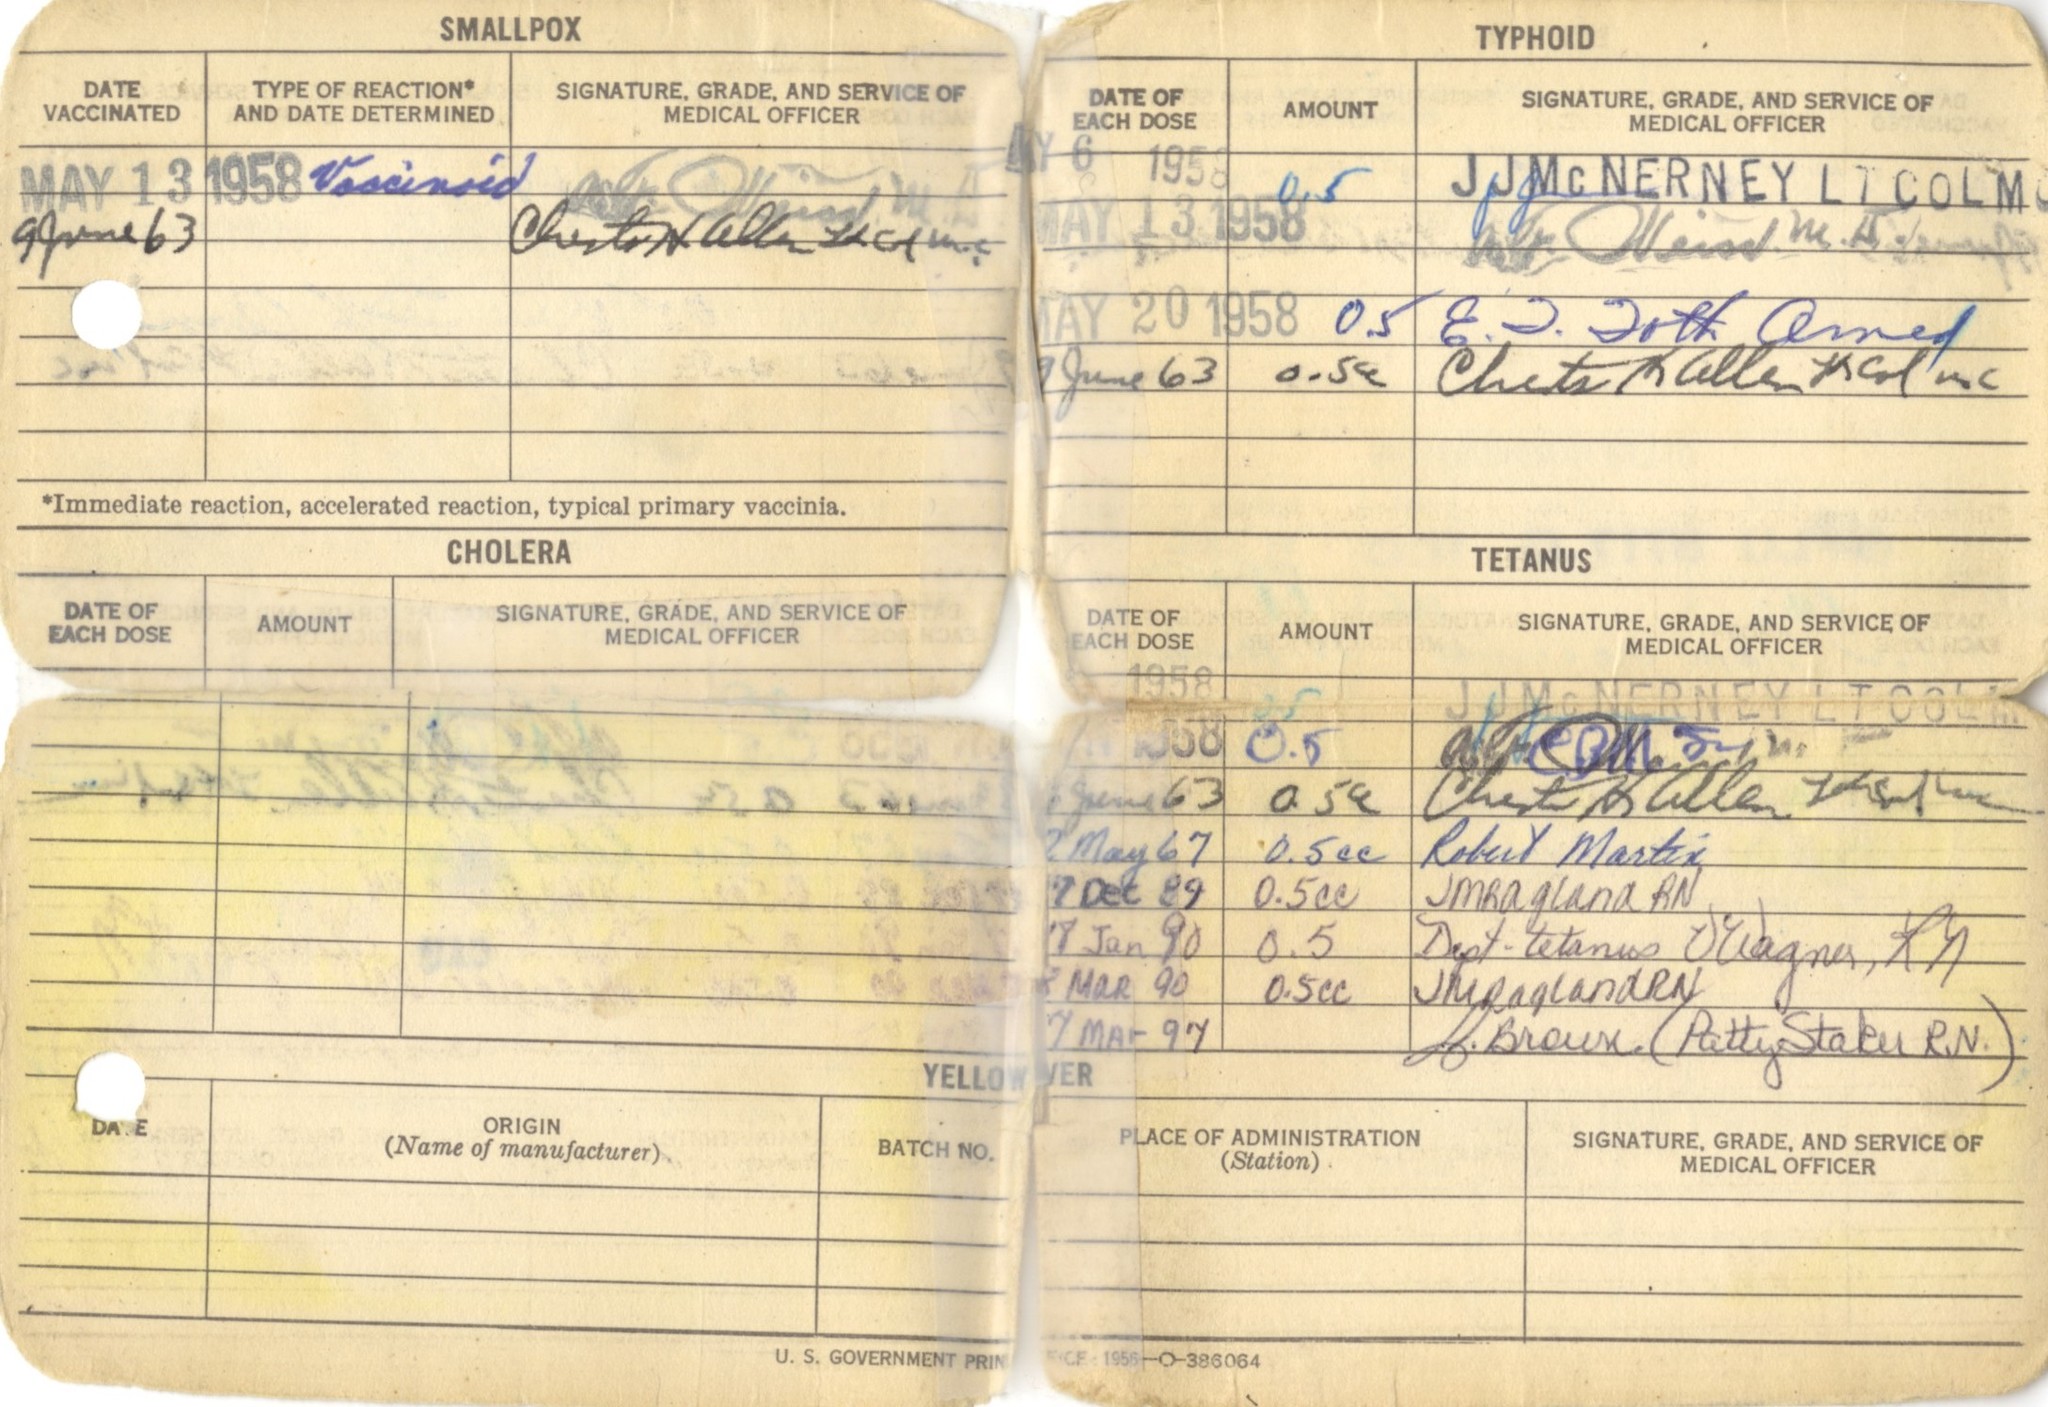 SMALLPOX
DATE VACCINATED
TYPE OF REACTION* AND DATE DETERMINED
SIGNATURE, GRADE, AND SERVICE OF MEDICAL OFFICER
MAY 13 1958 Vaccinoid
9 June 63 Chester H Allen Lt Col MC
*Immediate reaction, accelerated reaction, typical primary vaccinia.
CHOLERA
DATE OF EACH DOSE
AMOUNT
SIGNATURE, GRADE, AND SERVICE OF MEDICAL OFFICER
TYPHOID
DATE OF EACH DOSE
AMOUNT
SIGNATURE, GRADE, AND SERVICE OF MEDICAL OFFICER
AY 6 1958 0.5 JJMcNERNEY LT COL MC
MAY 13 1958
MAY 20 1958 0.5 E. T. Toth
9 June 63 0.5cc Chester H Allen Lt Col MC
TETANUS
DATE OF EACH DOSE
AMOUNT
SIGNATURE, GRADE, AND SERVICE OF MEDICAL OFFICER
1958 0.5 JJMcNERNEY LT COL M
1958 0.5
June 63 0.5cc Chester H Allen Lt Col MC
2 May 67 0.5cc Robert Martin
7 Dec 89 0.5cc JMRagland RN
Jan 90 0.5 Dipt-tetanus Wagner, RN
Mar 90 0.5cc JMRagland RN
7 Mar 97 L. Brown (Patty Staker R.N.)
YELLOW VER
DATE
ORIGIN
(Name of manufacturer)
BATCH NO.
PLACE OF ADMINISTRATION
(Station)
SIGNATURE, GRADE, AND SERVICE OF MEDICAL OFFICER
U. S. GOVERNMENT PRIN ICE : 1956—O-386064